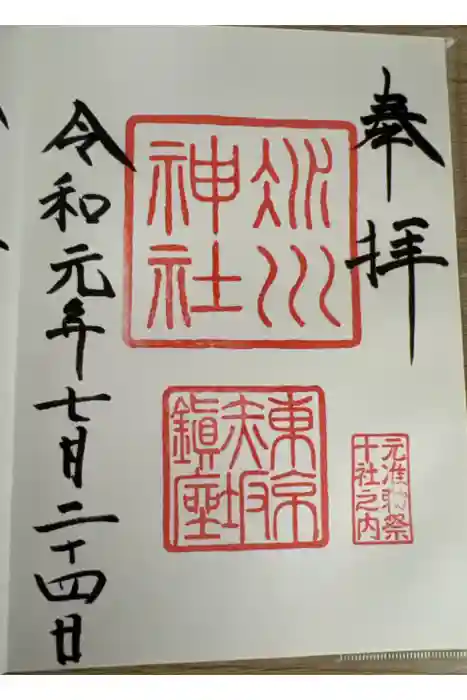 奉拝
氷川
神社
東京
赤坂
鎮座
元准勅祭
十社之内
令和元年七月二十四日